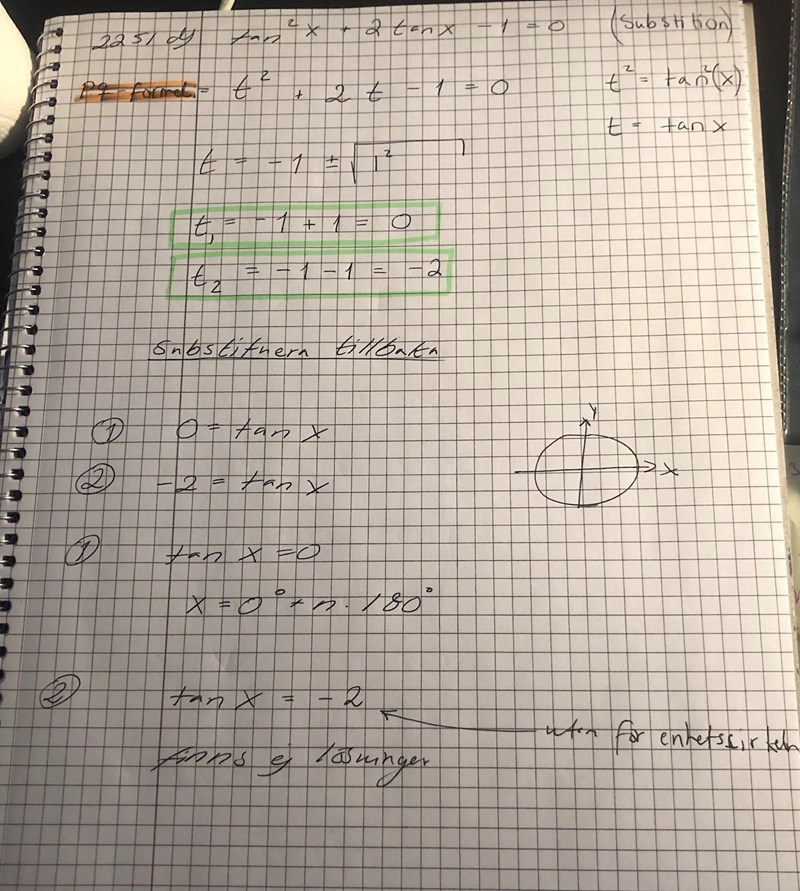 2251 d) tan²x + 2 tanx - 1 = 0 (Substition)
PQ-formel = t² + 2t - 1 = 0 t² = tan²(x)
t = tanx
t = -1 ± √1²
t₁ = -1 + 1 = 0
t₂ = -1 - 1 = -2
Substituera tillbaka
① 0 = tan x
② -2 = tan x
y
x
① tan x = 0
x = 0° + n · 180°
② tan x = -2
utan för enhetscirkeln
finns ej lösninger